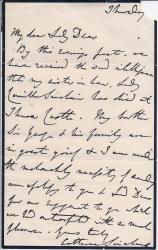 Thursday
My dear Lady Dean
By this evening's post we
have received the sad intelligence
that my sister in law, Lady
Camilla Sinclair has died at
Thurso Castle. My brother
Sir George & his family are
in great grief & I am under
the melancholy necessity of
apology to you &
for our engagement to you
we had
pleasure. Yours truly
Catherine Sinclair